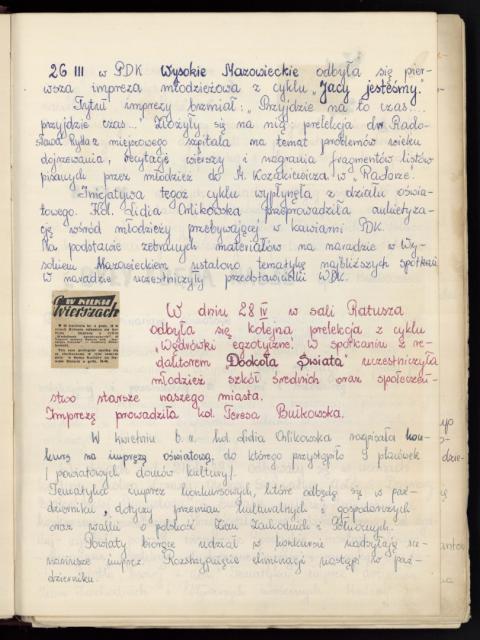 26 III w PDK Wysokie Mazowieckie odbyła się pier-
wsza impreza młodzieżowa z cyklu „Jacy jesteśmy."
Tytuł imprezy brzmiał: „Przyjdzie na to czas...
przyjdzie czas..." Złożyły się na nią: prelekcja dr Rado-
sława Ryła z miejscowego szpitala na temat problemów wieku
dojrzewania, recytacje wierszy i nagrania fragmentów listów
pisanych przez młodzież do M. Kozakiewicza w „Radarze".
Inicjatywa tegoż cyklu wypłynęła z działu oświa-
towego. Kol. Lidia Orlikowska przeprowadziła ankietyza-
cję wśród młodzieży przebywającej w kawiarni PDK.
Na podstawie zebranych materiałów na naradzie w Wy-
sokiem Mazowieckiem ustalono tematykę najbliższych spotkań
W naradzie uczestniczyły przedstawicielki WDK.
W KILKU
wierszach
W dniu 28 IV w sali Ratusza
odbyła się kolejna prelekcja z cyklu
„Wędrówki egzotyczne". W spotkaniu z re-
daktorem „Dookoła Świata" uczestniczyła
młodzież szkół średnich oraz społeczeń-
stwo starsze naszego miasta.
Imprezę prowadziła kol. Teresa Bułkowska.
W kwietniu b.r. kol. Lidia Orlikowska rozpisała kon-
kurs na imprezę oświatową, do którego przystąpiło 5 placówek
/powiatowych domów kultury/.
Tematyka imprez konkursowych, które odbędą się w paź-
dzierniku, dotyczy przemian kulturalnych i gospodarczych
oraz walki o polskość Ziem Zachodnich i Północnych.
Powiaty biorące udział w konkursie nadsyłają sce-
nariusze imprez. Rozstrzygnięcie eliminacji nastąpi w paź-
dzierniku.